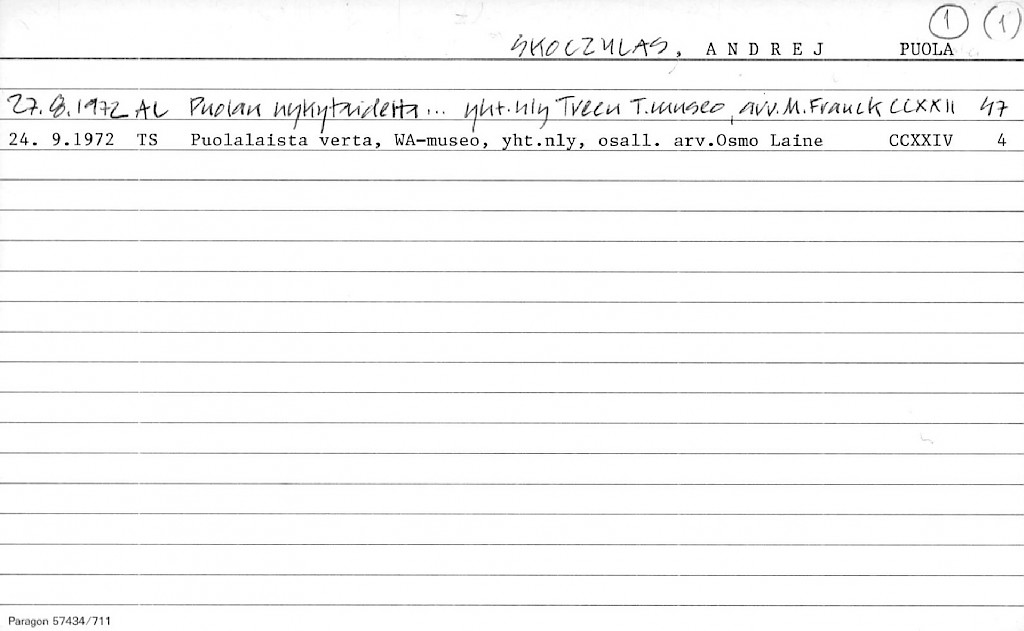 1 (1)
SKOCZULAS, ANDREJ PUOLA
27.8.1972 AL Puolan nykytaidetta... yht.nly Treen T.museo, arv.M.Franck CCXXII 47
24. 9.1972 TS Puolalaista verta, WA-museo, yht.nly, osall. arv.Osmo Laine CCXXIV 4
Paragon 57434/711